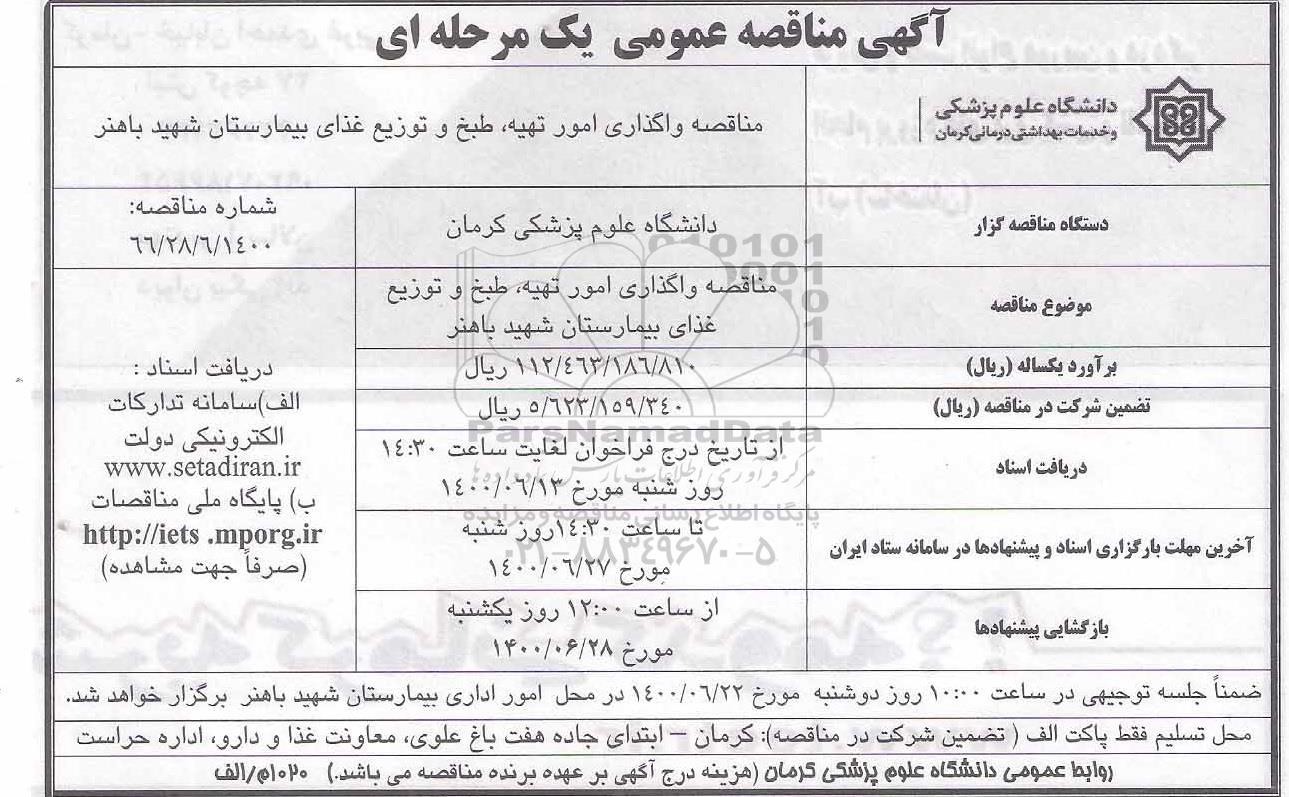 آگهی مناقصه عمومی یک مرحله ای
دانشگاه علوم پزشکی
و خدمات بهداشتی درمانی کرمان
مناقصه واگذاری امور تهیه، طبخ و توزیع غذای بیمارستان شهید باهنر
دستگاه مناقصه گزار
دانشگاه علوم پزشکی کرمان
شماره مناقصه:
٦٦/٢٨/٦/١٤٠٠
موضوع مناقصه
مناقصه واگذاری امور تهیه، طبخ و توزیع
غذای بیمارستان شهید باهنر
برآورد یکساله (ریال)
١١٢/٤٦٣/١٨٦/٨١٠ ریال
تضمین شرکت در مناقصه (ریال)
٥/٦٢٣/١٥٩/٣٤٠ ریال
دریافت اسناد
از تاریخ درج فراخوان لغایت ساعت ١٤:٣٠
روز شنبه مورخ ١٤٠٠/٠٦/١٣
آخرین مهلت بارگزاری اسناد و پیشنهادها در سامانه ستاد ایران
تا ساعت ١٤:٣٠روز شنبه
مورخ ١٤٠٠/٠٦/٢٧
بازگشایی پیشنهادها
از ساعت ١٢:٠٠ روز یکشنبه
مورخ ۱۴۰۰/۰۶/۲۸
دریافت اسناد :
الف)سامانه تدارکات
الکترونیکی دولت
www.setadiran.ir
ب) پایگاه ملی مناقصات
http://iets .mporg.ir
(صرفاً جهت مشاهده)
ضمناً جلسه توجیهی در ساعت ١٠:٠٠ روز دوشنبه مورخ ١٤٠٠/٠٦/٢٢ در محل امور اداری بیمارستان شهید باهنر برگزار خواهد شد.
محل تسلیم فقط پاکت الف ( تضمین شرکت در مناقصه): کرمان – ابتدای جاده هفت باغ علوی، معاونت غذا و دارو، اداره حراست
روابط عمومی دانشگاه علوم پزشکی کرمان (هزینه درج آگهی بر عهده برنده مناقصه می باشد.) ۱۰۲۰م/الف
ParsNamadData
مرکز فرآوری اطلاعات پارس نماد داده ها
پایگاه اطلاع رسانی مناقصه و مزایده
۰۲۱-۸۸۳۴۹۶۷۰-۵